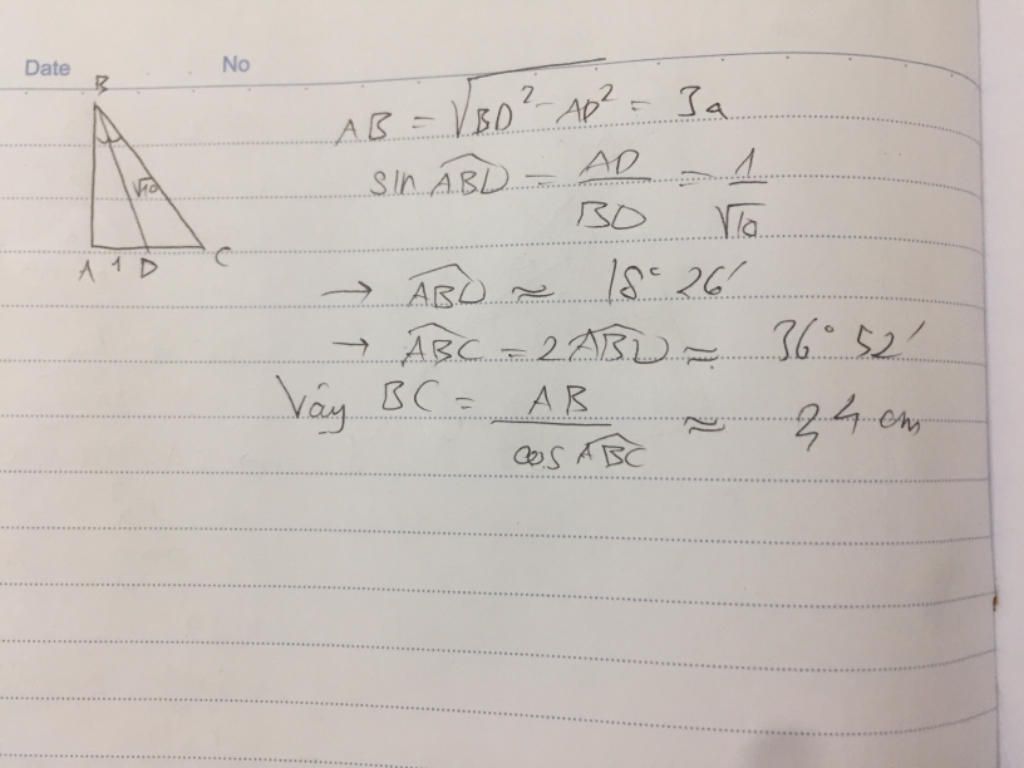 Date No
B
√10
A 1 D C
AB = √BD² - AD² = 3a
sin ABD = AD/BD = 1/√10
→ ABD ≈ 18° 26'
→ ABC = 2ABD ≈ 36° 52'
Vây BC = AB/cos ABC ≈ 24 cm